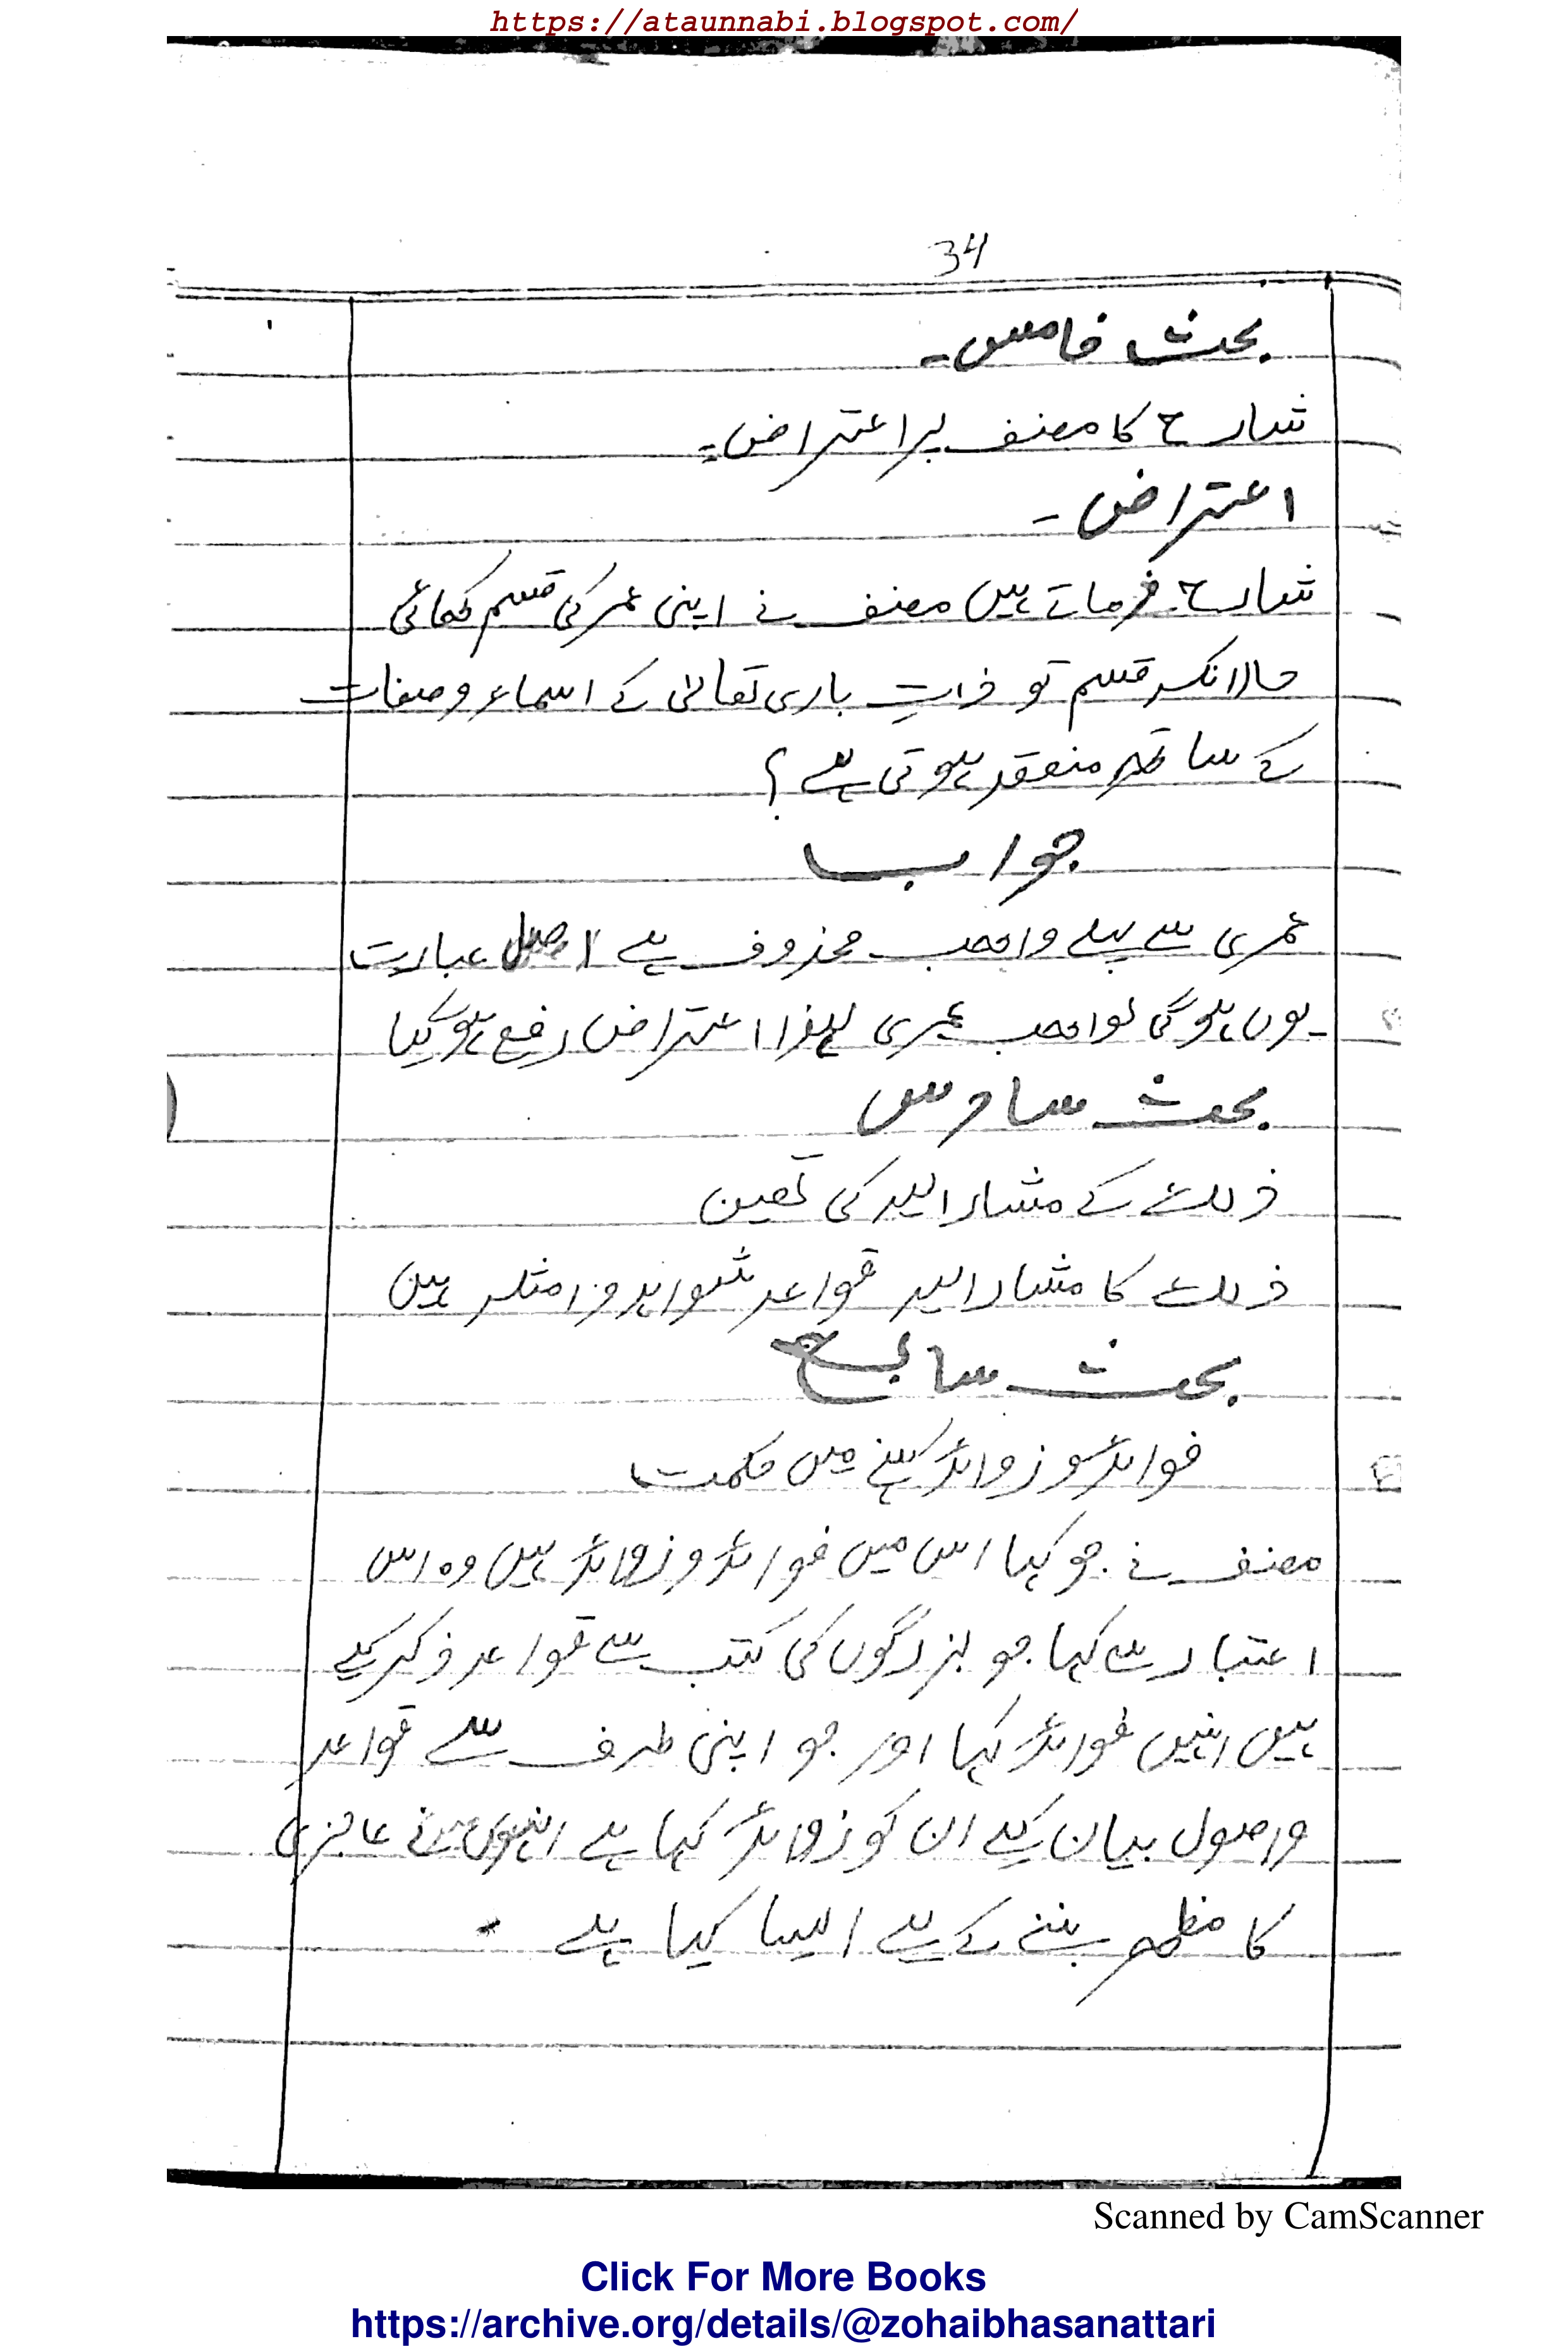 https://ataunnabi.blogspot.com/
34
بحث خامس۔
شارح کا مصنف پر اعتراض۔
اعتراض۔
شارح فرماتے ہیں مصنف نے اپنی عمر کی قسم کھائی
حالانکہ قسم تو ذاتِ باری تعالیٰ کے اسماء و صفات
کے ساتھ منعقد ہوتی ہے؟
جواب
عمری سے پہلے واھب محذوف ہے اصل عبارت
یوں ہوگی لواھب عمری لہٰذا اعتراض رفع ہوگیا
بحث سادس
ذلک کے مشار الیہ کی تعین
ذلک کا مشار الیہ قواعد شواہد و امثلہ ہیں
بحث سابع
فوائد و زوائد کہنے میں حکمت
مصنف نے جو کہا اس میں فوائد و زوائد ہیں وہ اس
اعتبار سے کہا جو بزرگوں کی کتب سے قواعد ذکر کیے
ہیں انہیں فوائد کہا اور جو اپنی طرف سے قواعد
و اصول بیان کیے ان کو زوائد کہا ہے انہوں نے عاجزی
کا مظھر بننے کے لیے ایسا کیا ہے۔
Scanned by CamScanner
Click For More Books
https://archive.org/details/@zohaibhasanattari